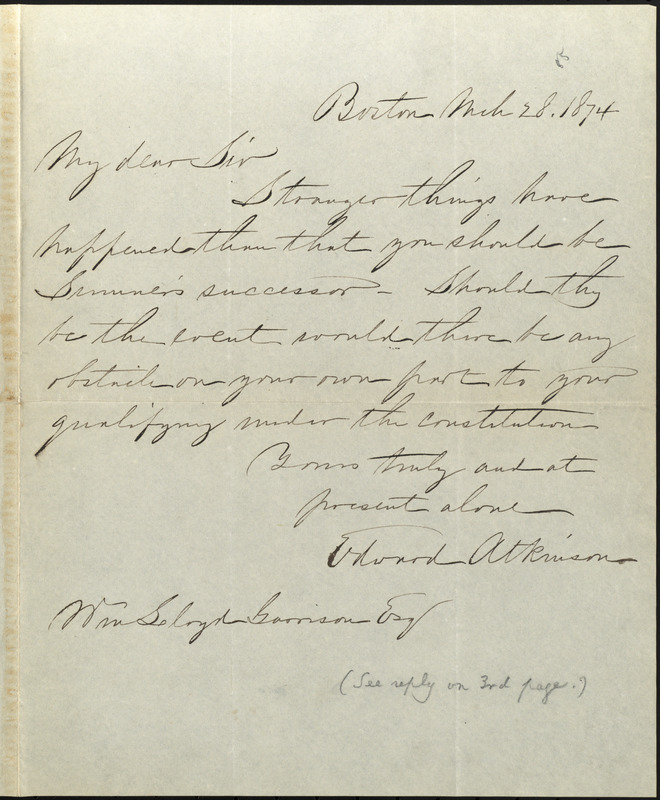 Boston Mch 28. 1874
My dear Sir
Stranger things have
happened than that you should be
Sumner's successor – Should this
be the event would there be any
obstacle on your own part to your
qualifying under the constitution
Yours truly and at
present alone
Edward Atkinson
Wm Lloyd Garrison Esq
(See reply on 3rd page.)